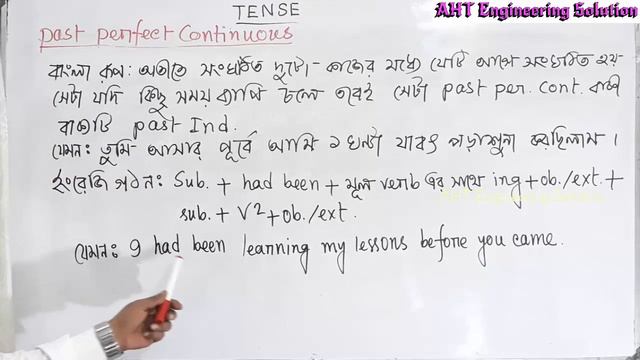 TENSE
AHT Engineering Solution
past perfect Continuous
বাংলা রূপ: অতীতে সংঘটিত দুটো কাজের মধ্যে যেটি আগে সংঘটিত হয়
সেটা যদি কিছু সময় ব্যাপি চলে তবেই সেটা past per. cont. বাকী
বাক্যটি past Ind.
যেমন: তুমি আসার পূর্বে আমি ১ ঘন্টা যাবৎ পড়াশুনা করছিলাম।
ইংরেজি গঠন: Sub. + had been + মূল verb এর সাথে ing + ob./ext. +
sub. + V2 + ob./ext.
যেমন: I had been learning my lessons before you came.